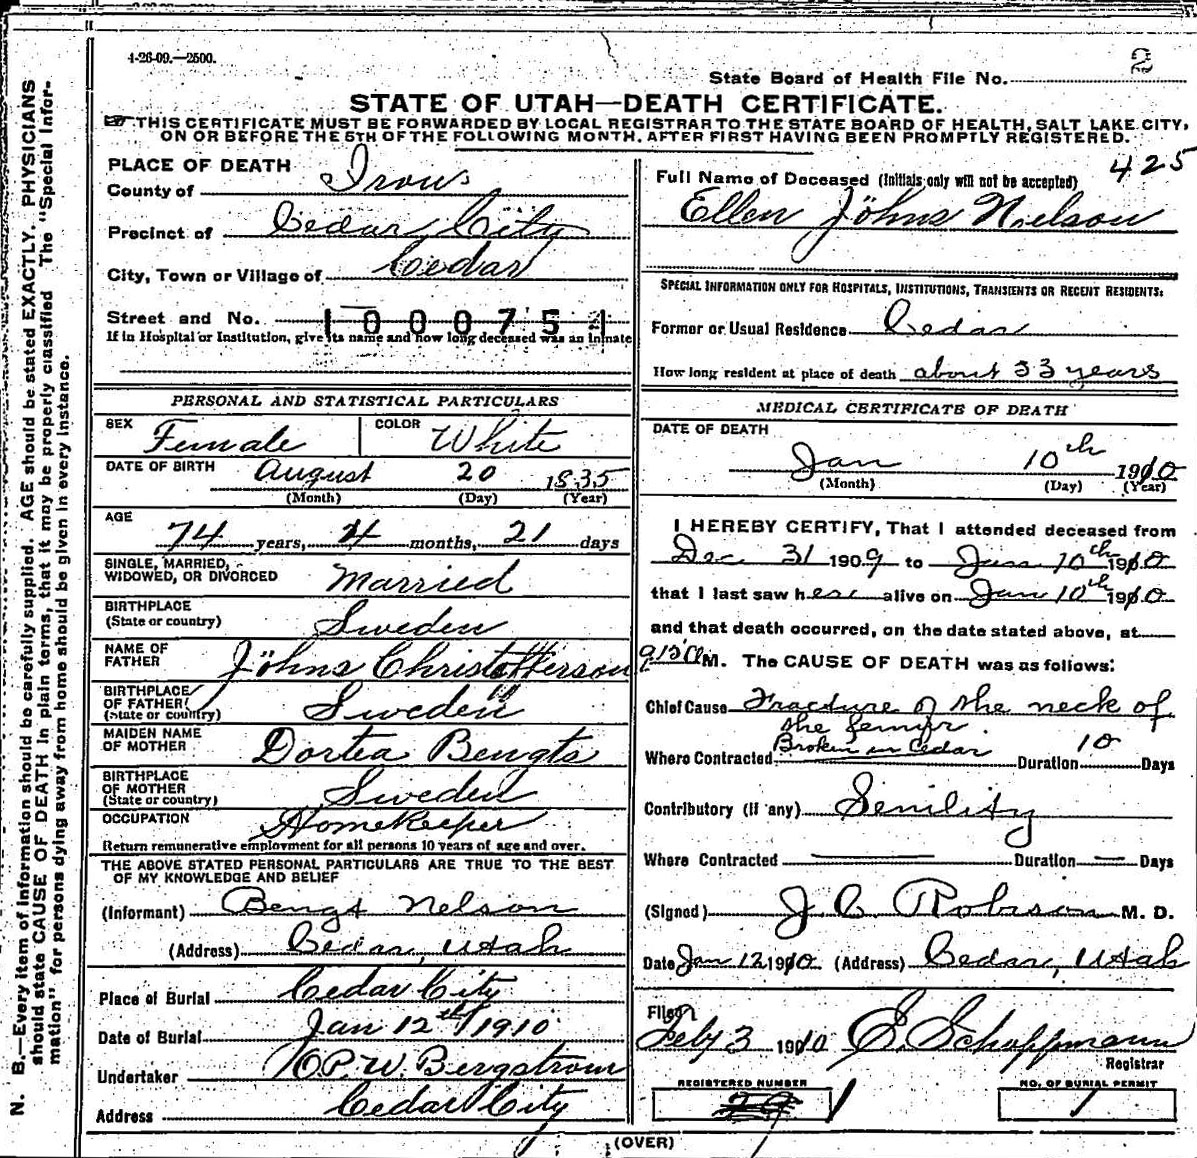 4-26-09.—2500.
2
State Board of Health File No.
STATE OF UTAH—DEATH CERTIFICATE.
THIS CERTIFICATE MUST BE FORWARDED BY LOCAL REGISTRAR TO THE STATE BOARD OF HEALTH, SALT LAKE CITY,
ON OR BEFORE THE 5TH OF THE FOLLOWING MONTH, AFTER FIRST HAVING BEEN PROMPTLY REGISTERED.
PLACE OF DEATH
County of Iron
Precinct of Cedar City
City, Town or Village of Cedar
Street and No. 1000751
If in Hospital or Institution, give its name and how long deceased was an inmate
PERSONAL AND STATISTICAL PARTICULARS
SEX Female COLOR White
DATE OF BIRTH August 20 1835
(Month) (Day) (Year)
AGE
74 years, 4 months, 21 days
SINGLE, MARRIED,
WIDOWED, OR DIVORCED Married
BIRTHPLACE
(State or country) Sweden
NAME OF
FATHER Jöhns Christofferson
BIRTHPLACE
OF FATHER
(State or country) Sweden
MAIDEN NAME
OF MOTHER Dortea Bengts
BIRTHPLACE
OF MOTHER
(State or country) Sweden
OCCUPATION Homekeeper
Return remunerative employment for all persons 10 years of age and over.
THE ABOVE STATED PERSONAL PARTICULARS ARE TRUE TO THE BEST
OF MY KNOWLEDGE AND BELIEF
(Informant) Bengt Nelson
(Address) Cedar, Utah
Place of Burial Cedar City
Date of Burial Jan 12th 1910
Undertaker P. W. Bergstrom
Address Cedar City
425
Full Name of Deceased (Initials only will not be accepted)
Ellen Jöhns Nielson
SPECIAL INFORMATION ONLY FOR HOSPITALS, INSTITUTIONS, TRANSIENTS OR RECENT RESIDENTS:
Former or Usual Residence Cedar
How long resident at place of death about 53 years
MEDICAL CERTIFICATE OF DEATH
DATE OF DEATH
Jan 10th 1910
(Month) (Day) (Year)
I HEREBY CERTIFY, That I attended deceased from
Dec 31 1909 to Jan 10th 1910
that I last saw her alive on Jan 10th 1910
and that death occurred, on the date stated above, at
M. The CAUSE OF DEATH was as follows:
Chief Cause Fracture of the neck of
the femur
Where Contracted Broken in Cedar Duration 10 Days
Contributory (if any) Senility
Where Contracted Duration Days
(Signed) J. C. Robison M. D.
Date Jan 12 1910 (Address) Cedar, Utah
Filed
Feby 3 1910 E. Schoppmann
Registrar
REGISTERED NUMBER NO. OF BURIAL PERMIT
29 1 1
(OVER)
N. B.—Every item of information should be carefully supplied. AGE should be stated EXACTLY. PHYSICIANS
should state CAUSE OF DEATH in plain terms, that it may be properly classified The "Special Infor-
mation" for persons dying away from home should be given in every instance.